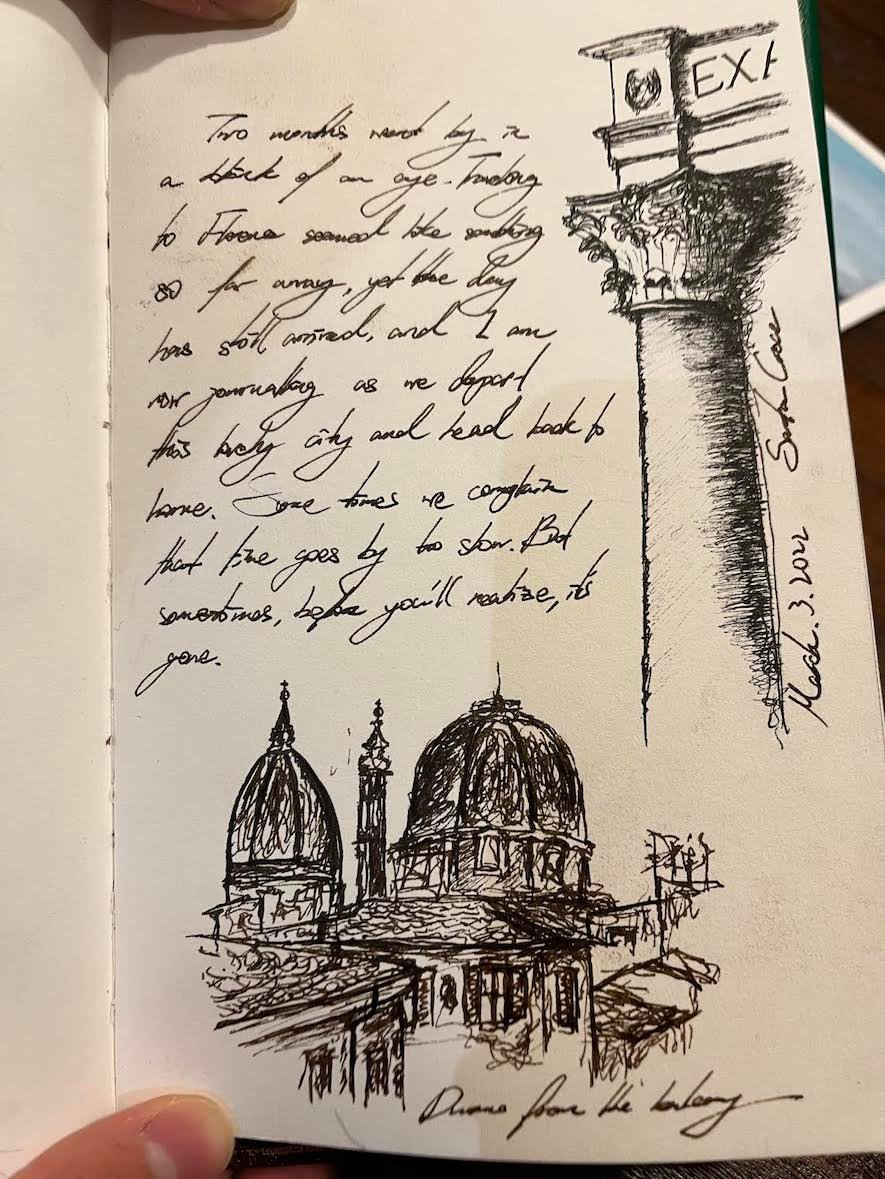 Two months went by in
a blink of an eye. Traveling
to Florence seemed like something
so far away, yet the day
has still arrived, and I am
now journaling as we depart
this lovely city and head back to
home. Some times we complain
that time goes by too slow. But
sometimes, before you'll realize, it's
gone.
EXA
Santa Croce
March. 3. 2022
Duomo from the balcony